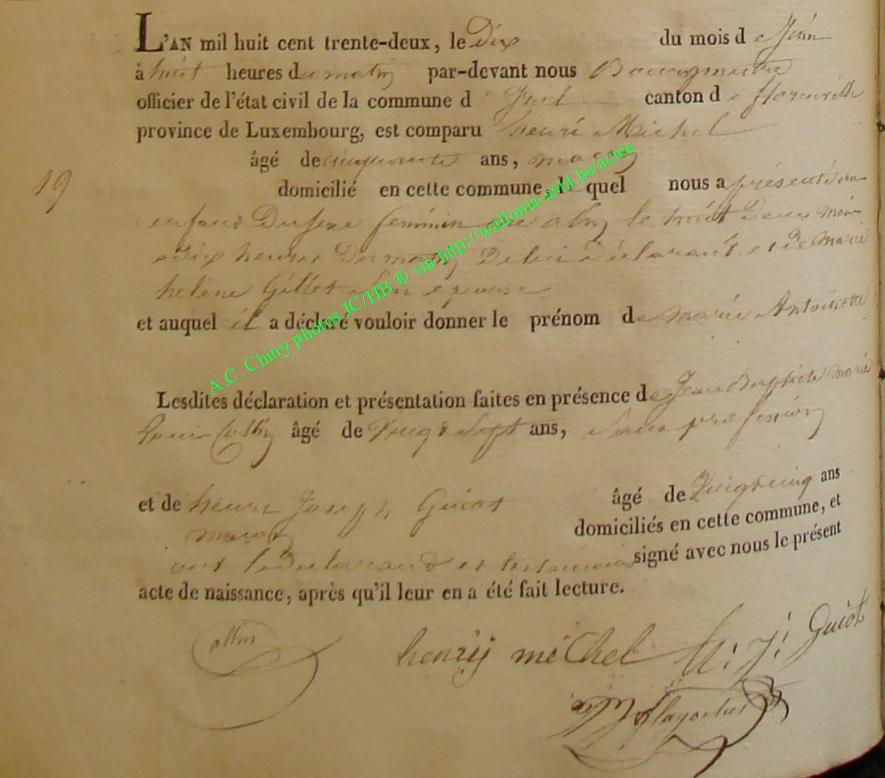 L'AN mil huit cent trente-deux, le Dix du mois de Juin
à huit heures du matin par-devant nous Bourgmestre
officier de l'état civil de la commune d canton de florenville
province de Luxembourg, est comparu henri Michel
âgé de cinquante ans,
19
domicilié en cette commune, le quel nous a présenté un
enfant Du sexe feminin né a le huit Du mois
a dix heures Du matin De lui Déclarant et De Marie
helène Gillet Son epouse
et auquel il a déclaré vouloir donner le prénom de Marie Antoinette
A.C. Chiny photos JC/HB ® via http://wallonia-asbl.be/actes
Lesdites déclaration et présentation faites en présence de Jean Baptiste Marie
Louis âgé de Vingt Sept ans, Sans profession
et de henri Joseph Guiot âgé de Vingt cinq ans
domiciliés en cette commune, et
ont le Declarant et les temoins signé avec nous le présent
acte de naissance, après qu'il leur en a été fait lecture.
henrij michel h: j: Guiot